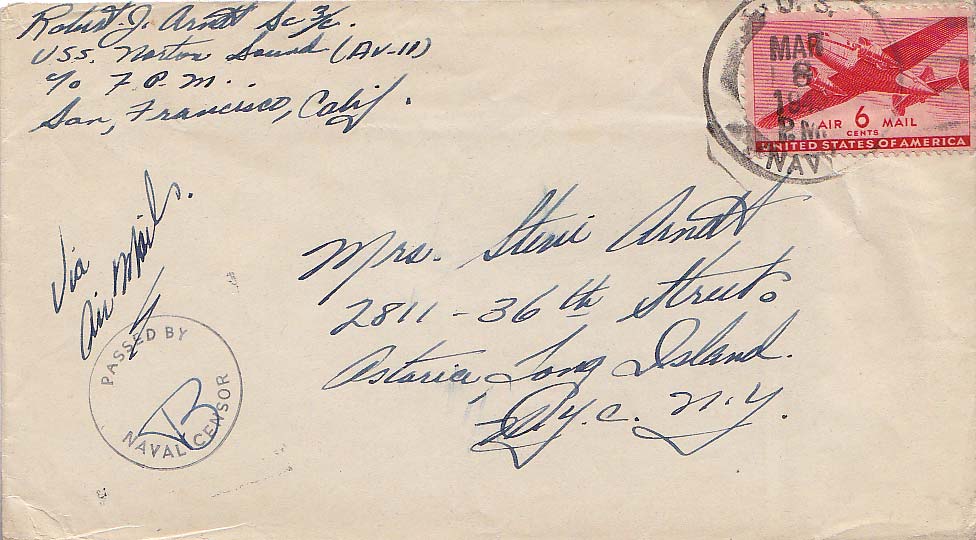 Robert J. Arndt Sc 3/c.
USS. Norton Sound (AV-11)
c/o F.P.M.
San, Francisco, Calif.
U.S.
MAR
8
P.M.
NAVY
AIR 6 MAIL
CENTS
UNITED STATES OF AMERICA
Via
Air Mails.
Mrs. Steve Arndt
2811-36th Street.
Astoria, Long Island.
N.Y.C. N.Y.
PASSED BY
B
NAVAL CENSOR